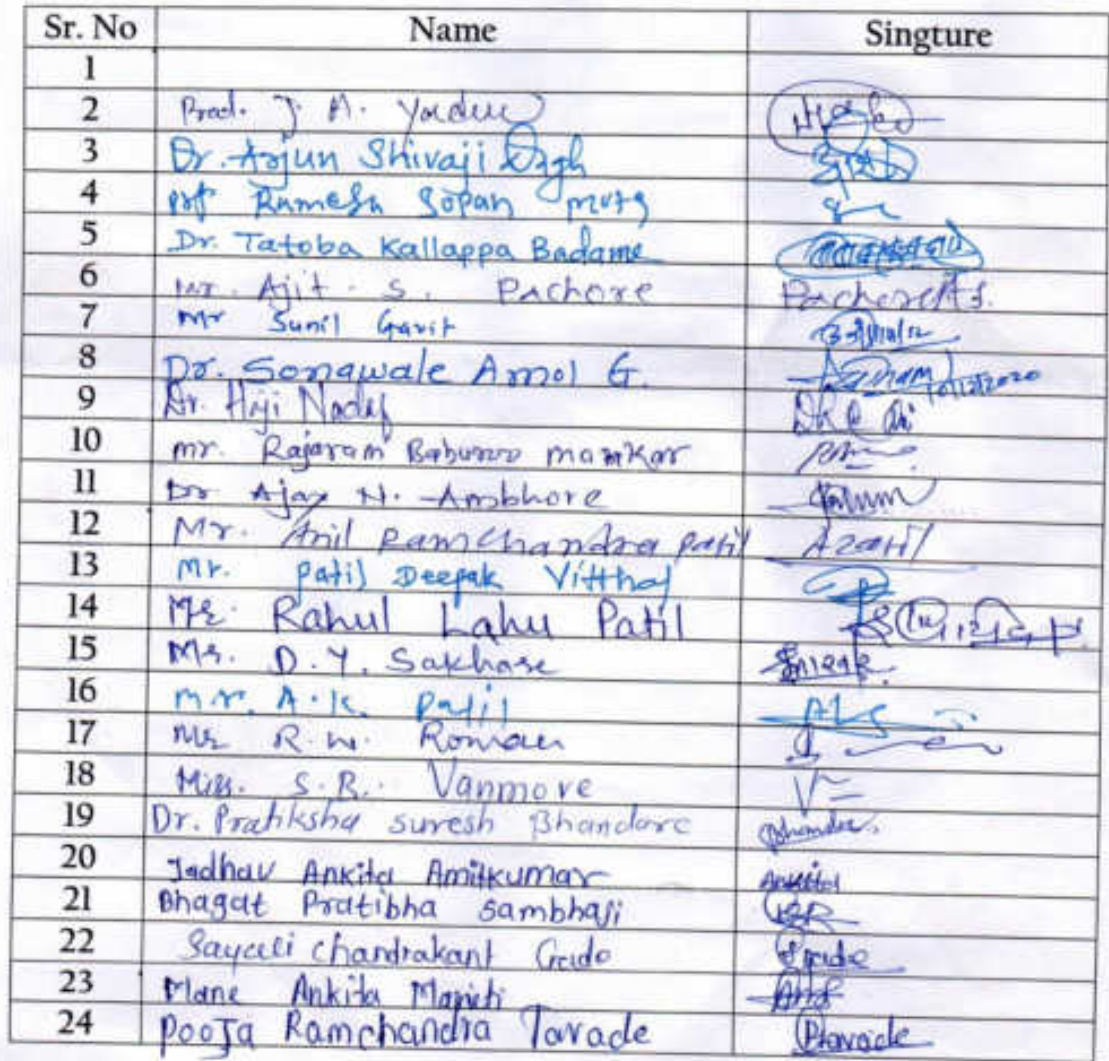 Sr. No Name Singture
1
2 Prod. J. A. Yadav
3 Dr. Arjun Shivaji Wagh
4 prof Ramesh Sopan
5 Dr. Tatoba Kallappa Badame
6 Mr. Ajit. S. Pachore Pachore A.S.
7 Mr Sunil Gavit
8 Dr. Sonawale Amol G. 10/12/2020
9 Dr. Haji Nadaf
10 mr. Rajaram Baburao mankar
11 Dr. Ajay N. Ambhore
12 Mr. Anil Ramchandra patil
13 Mr. patil Deepak Vitthal
14 Mr. Rahul Lahu Patil
15 Mr. D. Y. Sakhare
16 mr. A. K. patil
17 Mr R. W.
18 Miss. S. R. Vanmore
19 Dr. Pratiksha suresh Bhandare
20 Jadhav Ankita Amitkumar Ankita
21 Bhagat Pratibha Sambhaji
22 Sayali Chandrakant Gade
23 Mane Ankita Maruti
24 Pooja Ramchandra Tavade Ptavade